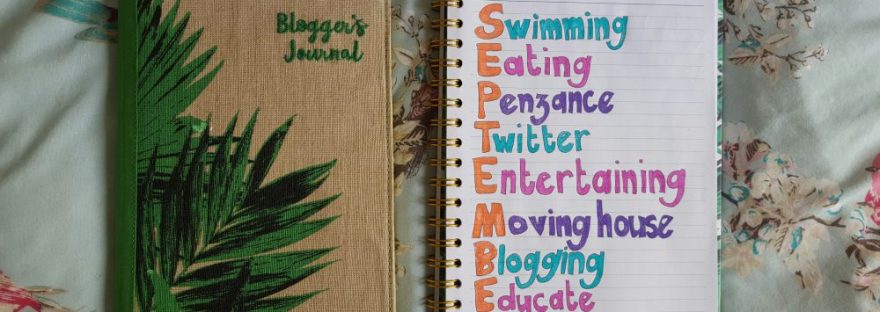 Blogger's
Journal
Swimming
Eating
Penzance
Twitter
Entertaining
Moving house
Blogging
Educate